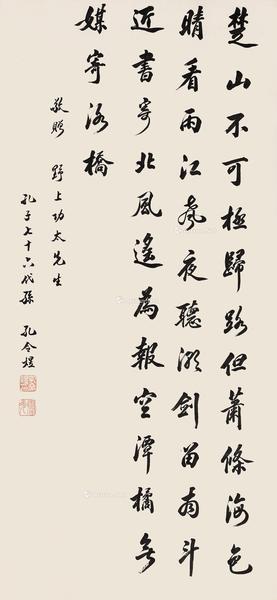 楚山不可極歸路但蕭條海色
晴看雨江聲夜聽潮劍留南斗
近書寄北風遙為報空潭橘無
媒寄洛橋
敬贈 野上功太先生
孔子七十六代孫 孔令煜